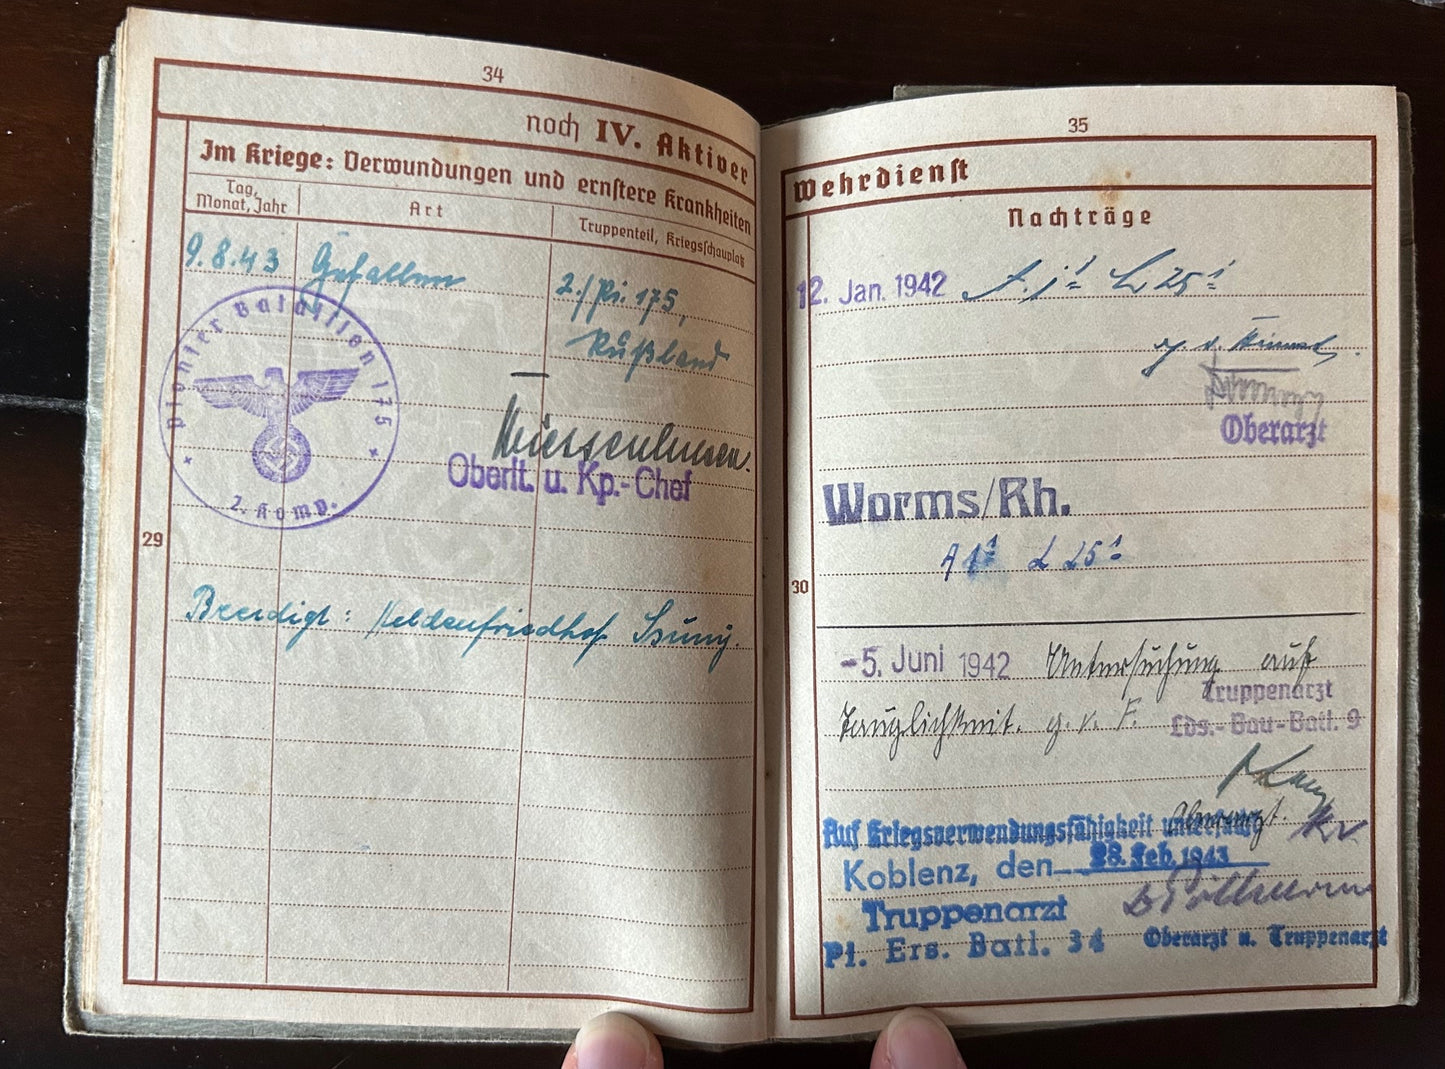 34
noch IV. Aktiver
Im Kriege: Verwundungen und ernstere Krankheiten
Tag, Monat, Jahr
Art
Truppenteil, Kriegsschauplatz
9.8.43 Gefallen 2./Pi. 175,
Rußland
Pionier Bataillon 175
2. Komp.
Oberlt. u. Kp.-Chef
29
Beerdigt: Heldenfriedhof
35
Wehrdienst
Nachträge
12. Jan. 1942
Oberarzt
Worms/Rh.
30
-5. Juni 1942 Untersuchung auf
Truppenarzt
Tauglichkeit. g. v. F.
Lds.-Bau-Batl. 9
Oberarzt.
Auf Kriegsverwendungsfähigkeit untersucht
kv
Koblenz, den 28. Feb. 1943
Truppenarzt
Pi. Ers. Batl. 34
Oberarzt u. Truppenarzt